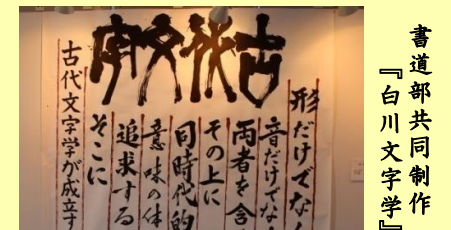 書道部共同制作
『白川文字学』
古代文字
形だけでな
音だけでな
両者を含
その上に
同時代的
意味の体
追求する
そこに
古代文字学が成立す